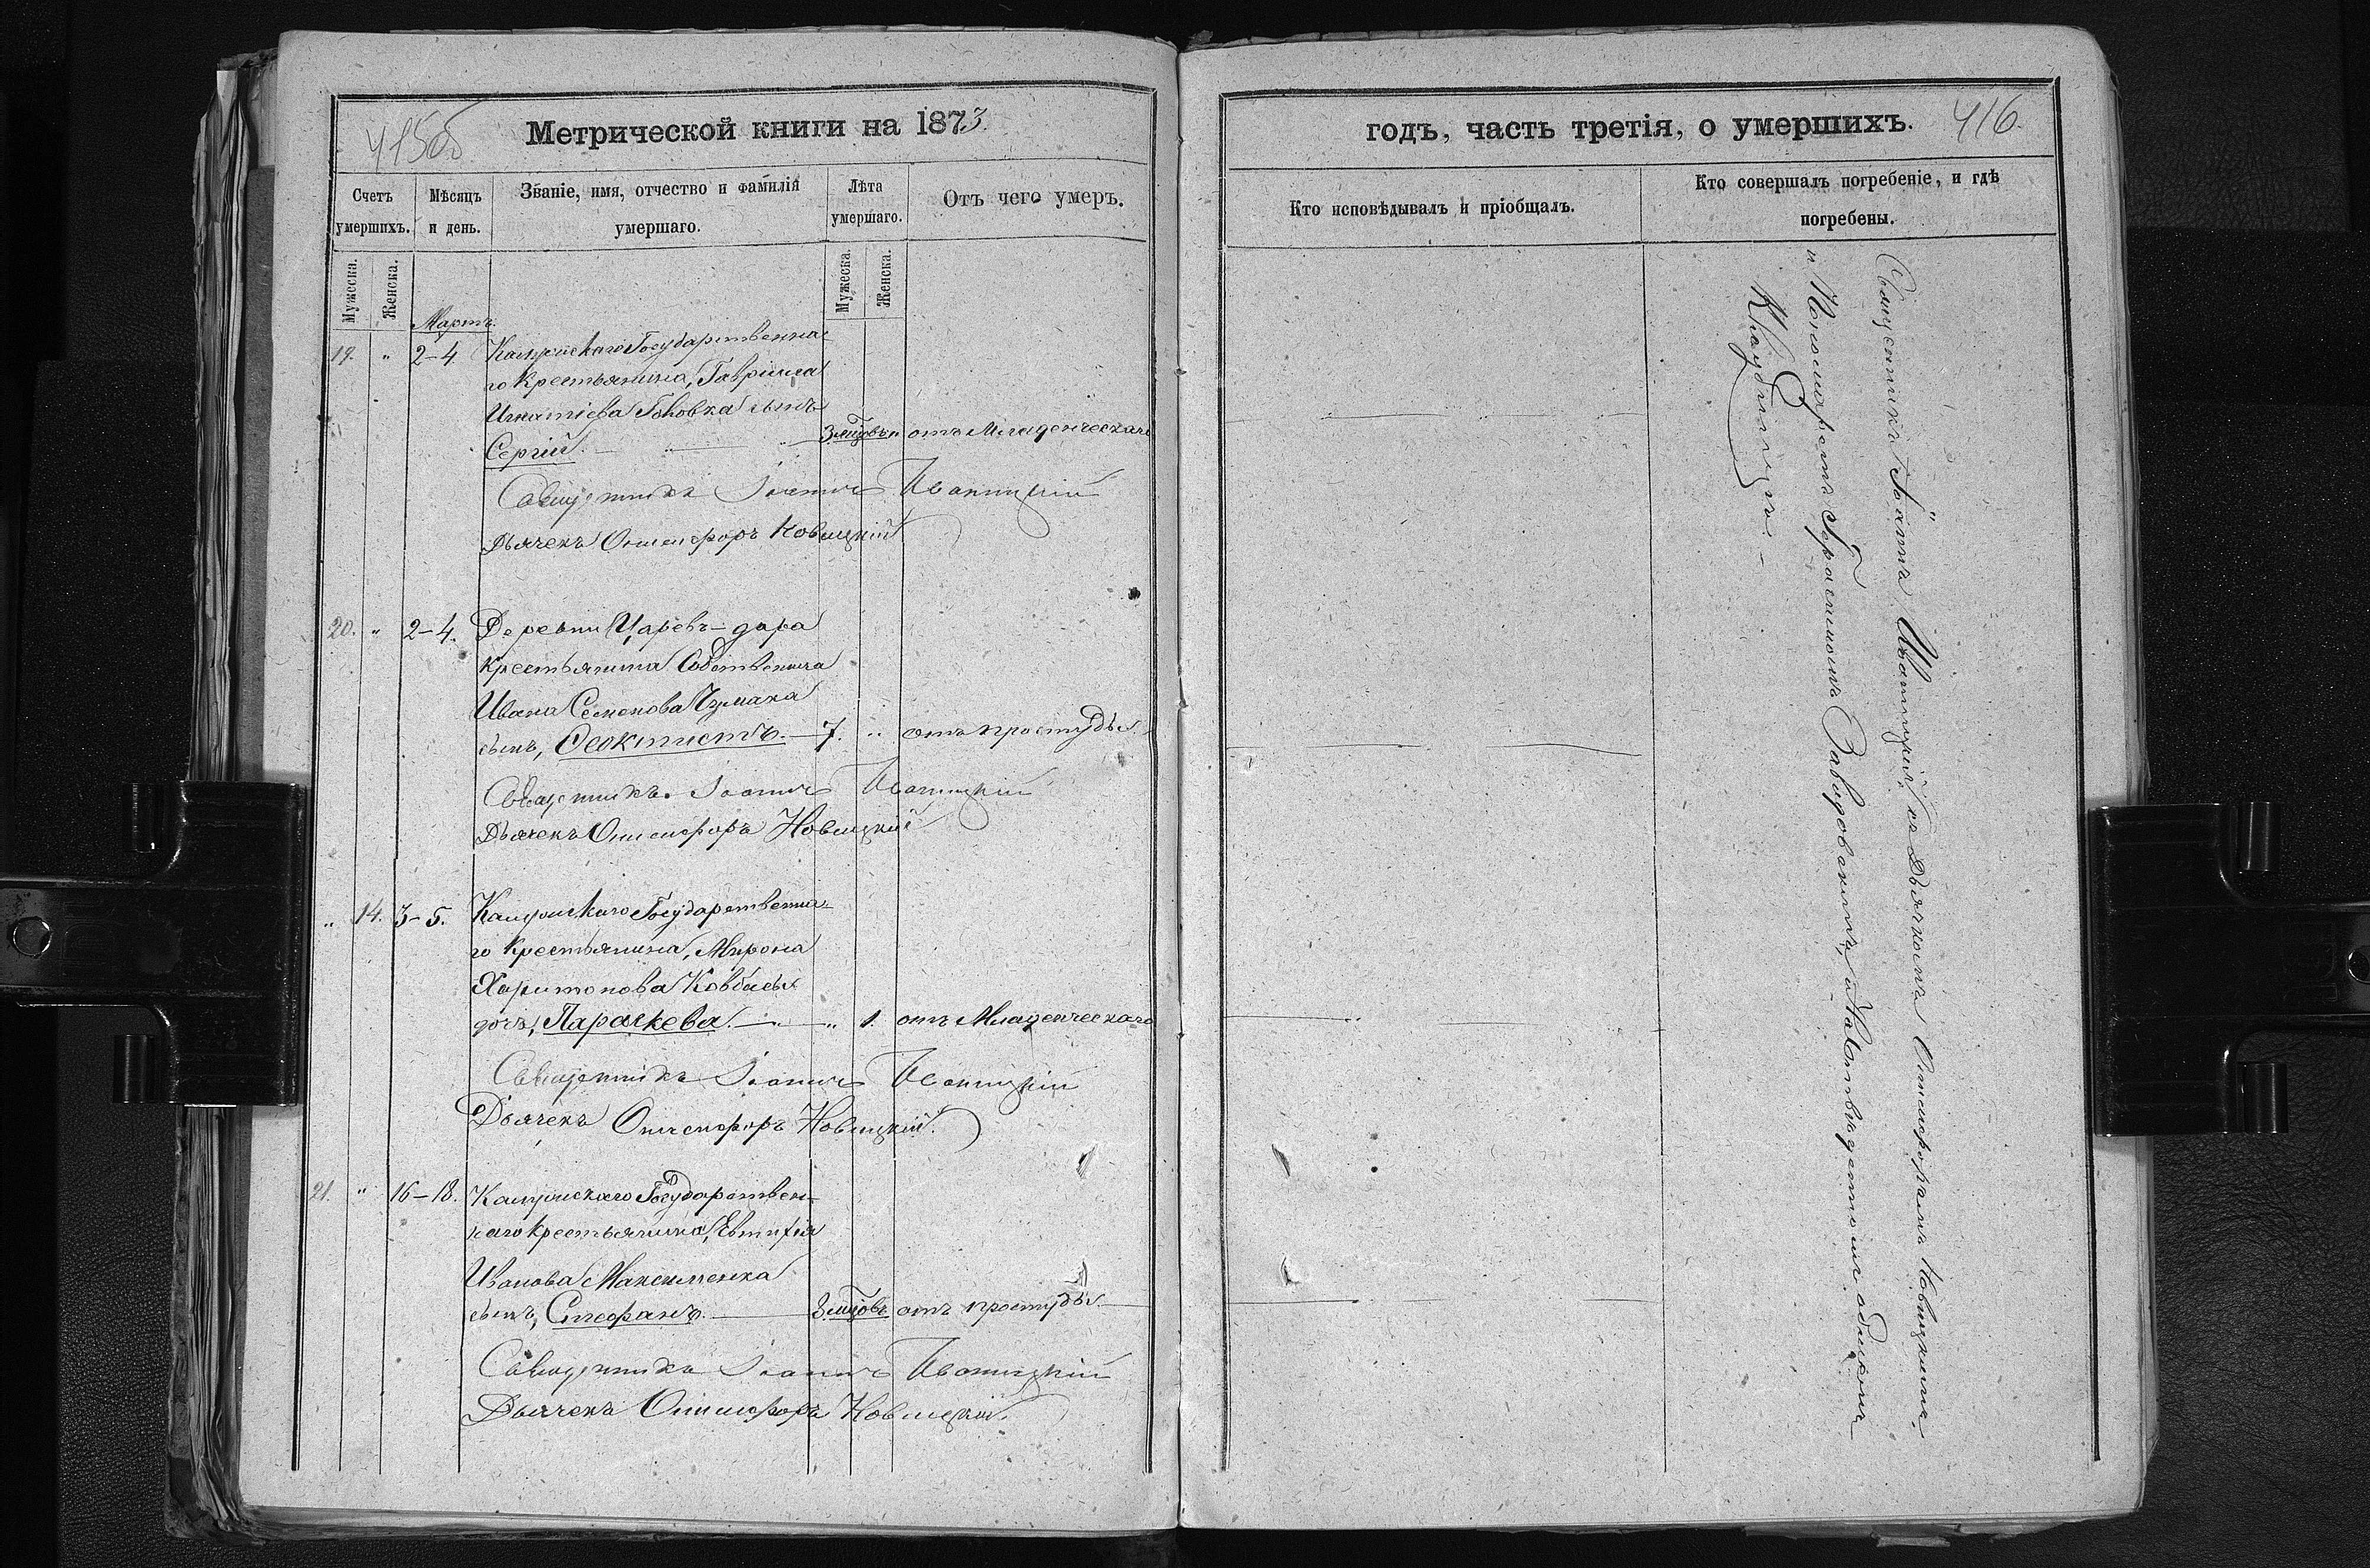 415об
Метрической книги на 1873.
Счетъ умершихъ.
Мѣсяцъ и день.
Званіе, имя, отчество и фамилія умершаго.
Лѣта умершаго.
Отъ чего умеръ.
Мужеска.
Женска.
Мужеска.
Женска.
Мартъ.
19. " 2–4 Государственна-
го крестьянина, Гавріила
Игнатіева Головка сынъ
Сергій. 3 мѣс " отъ Младенческаго
Священникъ Іоаннъ Иваницкій
Дьячекъ Онисифоръ Новицкій
20. " 2–4. Деревни Царевъ-дара
крестьянина Собственника
Ивана Семенова Чумака
сынъ, Ѳеоктистъ. — 7. " отъ простуды.
Священникъ Іоаннъ Иваницкій
Дьячекъ Онисифоръ Новицкій
" 14. 3–5. Государственна-
го крестьянина, Мирона
Харитонова Ковбасы
дочь, Параскева. — " 1. отъ Младенческаго
Священникъ Іоаннъ Иваницкій
Дьячекъ Онисифоръ Новицкій.
21. " 16–18. Государствен-
наго крестьянина, Евтихія
Иванова Максименка
сынъ, Стефанъ. отъ простуды.
Священникъ Іоаннъ Иваницкій
Дьячекъ Онисифоръ Новицкій.
годъ, часть третія, о умершихъ. 416.
Кто исповѣдывалъ и пріобщалъ.
Кто совершалъ погребеніе, и гдѣ погребены.
Священникъ Іоаннъ Иваницкій, съ Дьячкомъ Онисифоромъ Новицкимъ,
и Пономаремъ Герасимомъ на общемъ
Кладбищѣ.